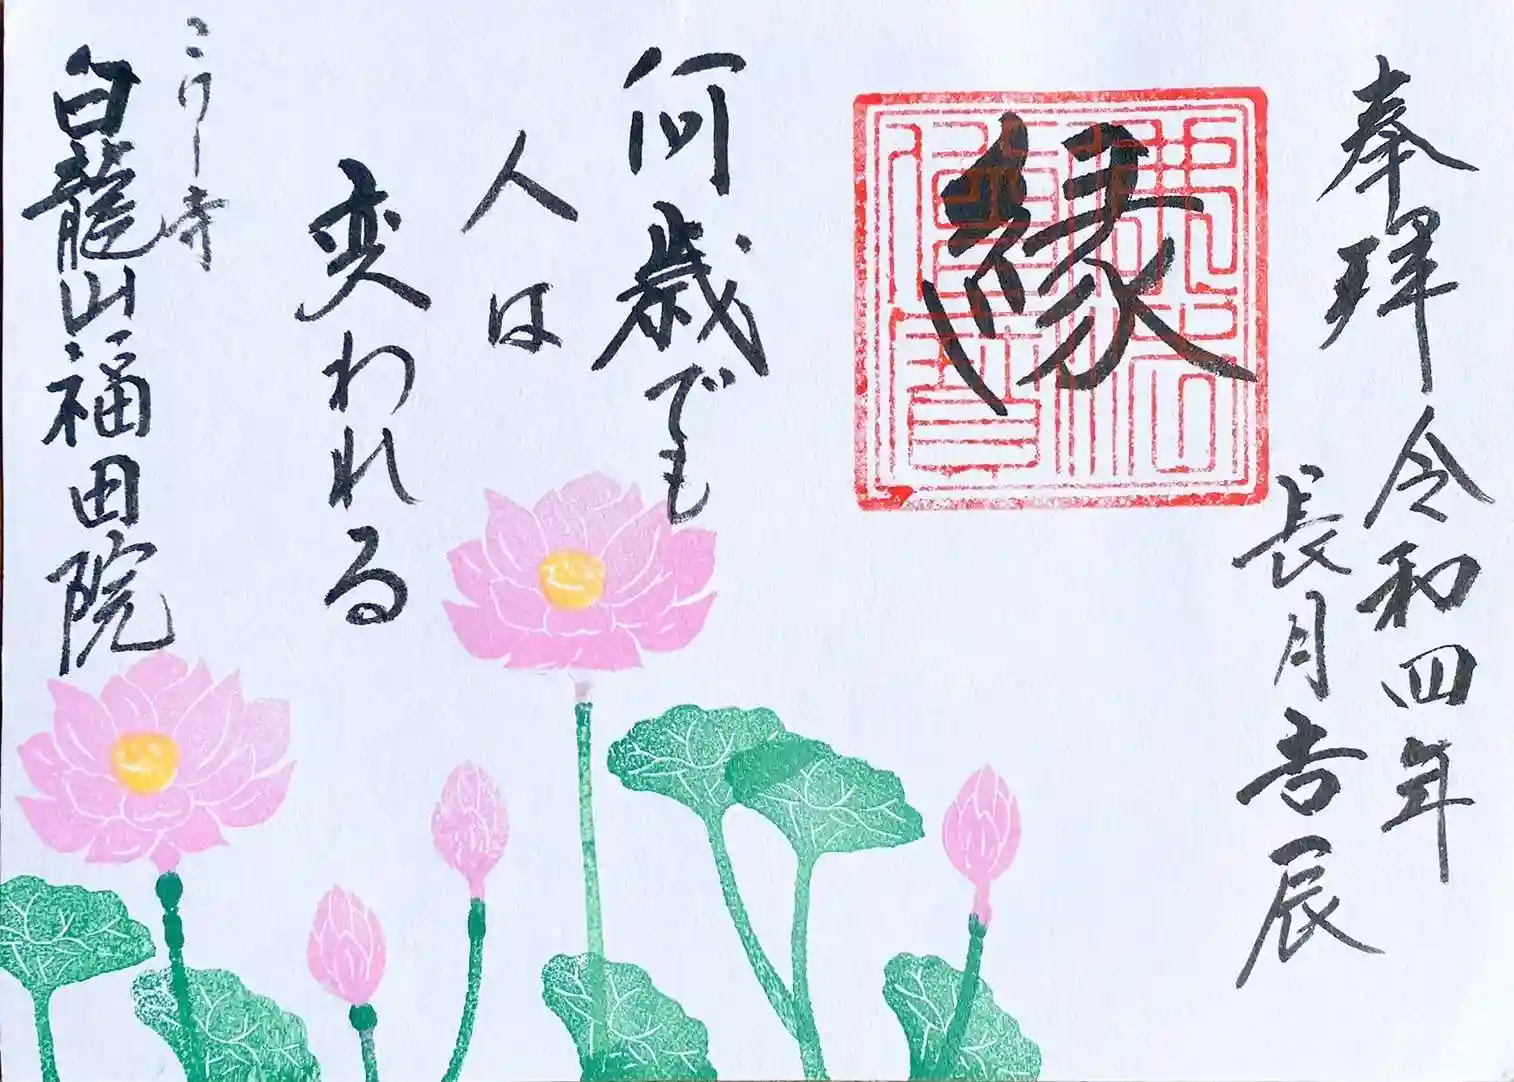 奉拝
令和四年
長月吉辰
縁
佛法僧寶
何歳でも
人は
変われる
こけし寺
白龍山福田院